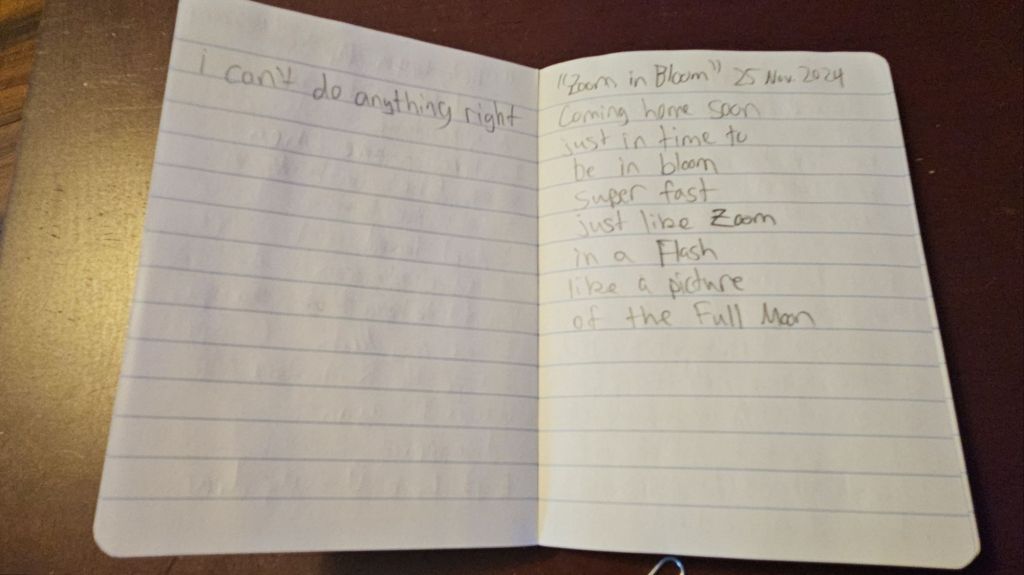 i can't do anything right
"Zoom in Bloom" 25 Nov. 2024
Coming home soon
just in time to
be in bloom
super fast
just like Zoom
in a Flash
like a picture
of the Full Moon